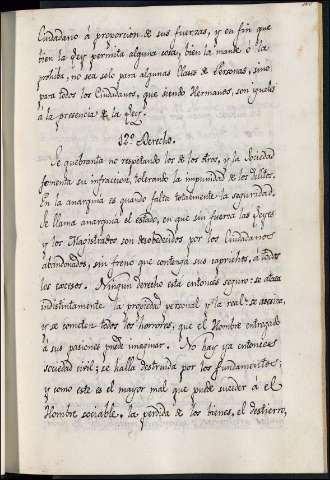 Ciudadano á proporcion de sus fuerzas, y en fin que
bien la Ley permita alguna cosa, bien la mande ó la
prohiba, no sea solo para algunas Clases de Personas, sino
para todos los Ciudadanos, que siendo Hermanos, son yguales
á la presencia de la Ley.
12º Derecho.
Se quebranta no respetando los de los otros, y la Sociedad
fomenta su infraccion, tolerando la impunidad de los Delitos.
En la anarquia es quando falta totalmente la seguridad.
Se llama anarquia el estado, en que sin fuerza las Leyes
y los Magistrados son desobedecidos por los Ciudadanos
abandonados, sin freno que contenga sus caprichos, á todos
los excesos. Ningun derecho está entonces seguro: se ataca
indistintamente la propiedad personal y la real: se asesina,
y se cometen todos los horrores, que el Hombre entregado
á sus pasiones puede imaginar. No hay ya entonces
sociedad civil; se halla destruida por los fundamentos;
y como este es el mayor mal que puede suceder á el
Hombre sociable, la perdida de los bienes, el destierro,